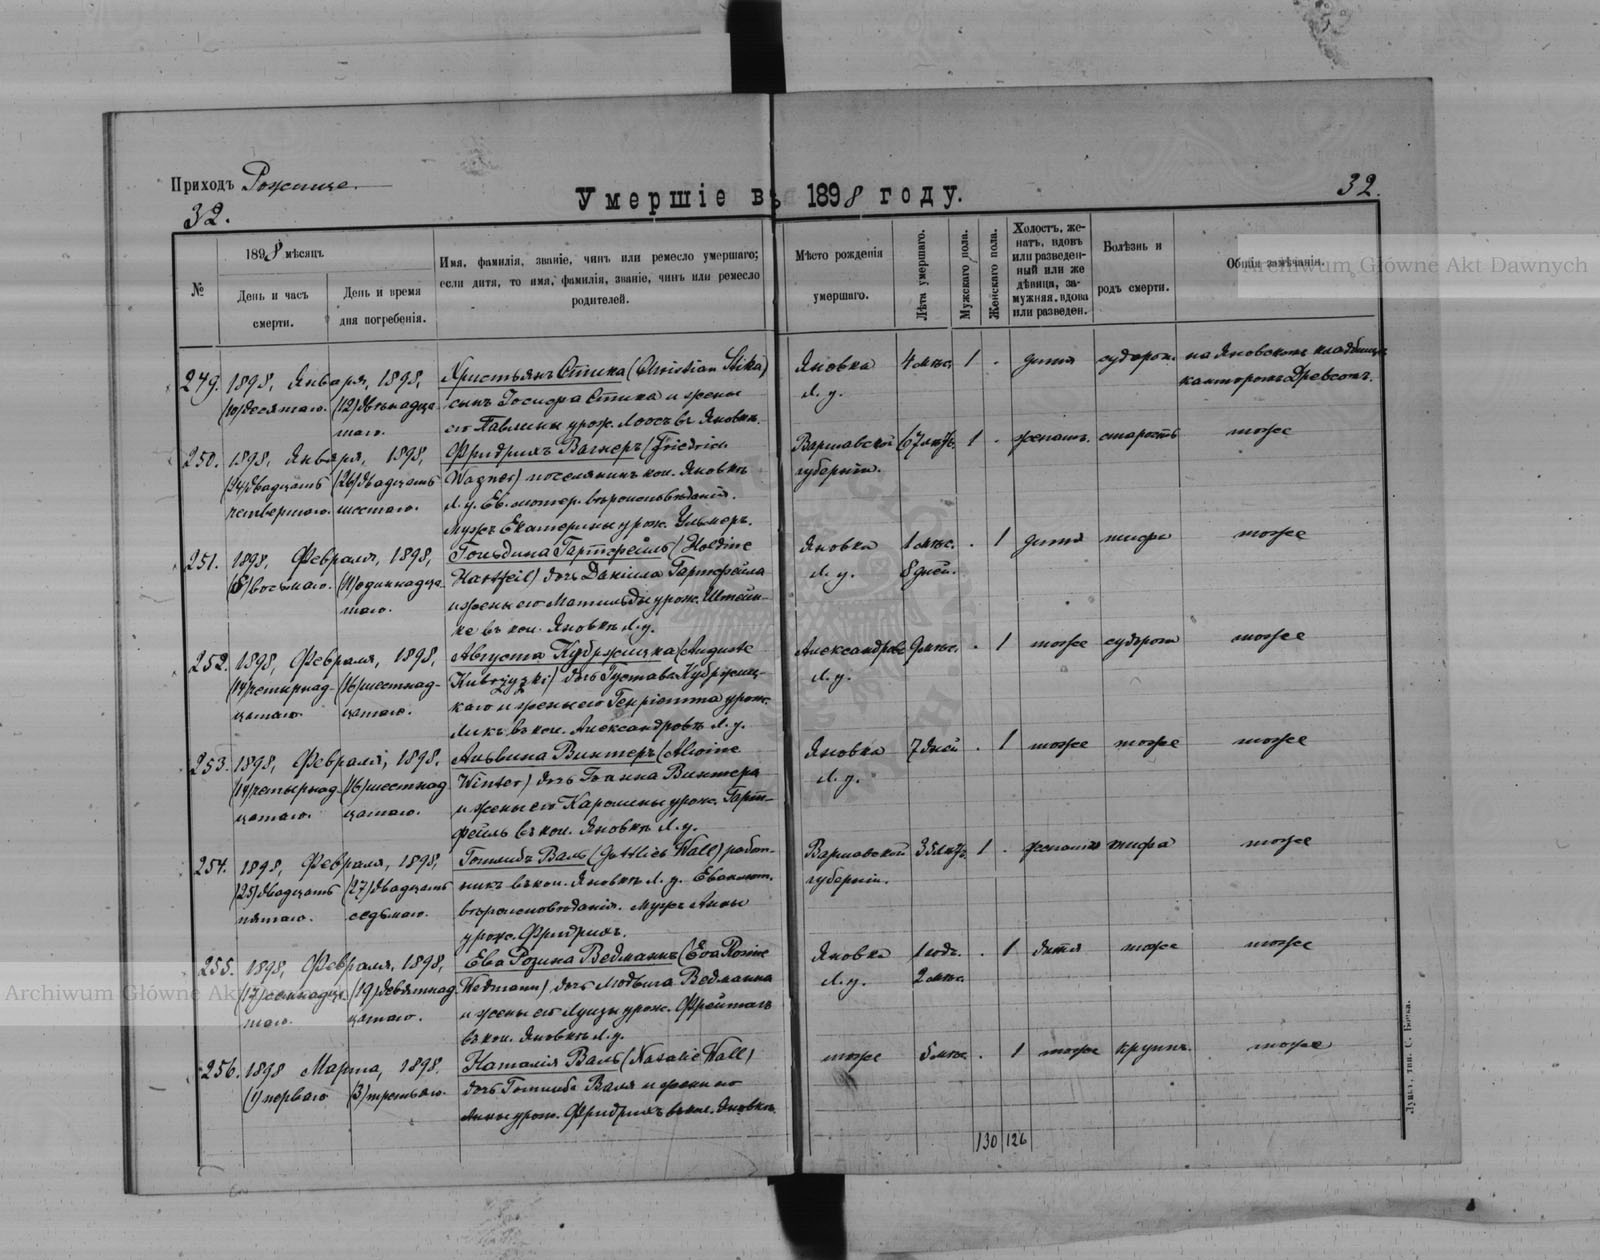 Приходъ Рожище.
Умершіе въ 1898 году.
32.
32.
№
1898 мѣсяцъ
День и часъ смерти.
День и время дня погребенія.
Имя, фамилія, званіе, чинъ или ремесло умершаго;
если дитя, то имя, фамилія, званіе, чинъ или ремесло
родителей.
Мѣсто рожденія
умершаго.
Лѣта умершаго.
Мужскаго пола.
Женскаго пола.
Холостъ, же-
натъ, вдовъ
или разведен-
ный или же
дѣвица, за-
мужняя, вдова
или разведен.
Болѣзнь и
родъ смерти.
Общія замѣчанія.
Archiwum Główne Akt Dawnych
249. 1898, Января, 1898, Христьянъ Стика (Christian Stika) Яновка 4 мѣс. 1 . дитя судорож. на Яновскомъ кладбищѣ
(10) десятаго. (12) двѣнадца- сынъ Іосифа Стика и жены Л. у. канторомъ Древсомъ.
таго. его Павлины урож. Лоосъ въ Яновкѣ.
250. 1898, Января, 1898, Фридрихъ Вагнеръ (Friedrich Варшавской 67 лѣтъ 1 . женатъ. старость тоже
(24) двадцать (26) двадцать Wagner) поселянинъ кол. Яновкѣ губерніи.
четвертаго. шестаго. Л. у. Ев. лютер. вѣроисповѣданія.
Мужъ Екатерины урож. Ульмеръ.
251. 1898, Февраля, 1898, Гольдина Гартфейль (Holdine Яновка 1 мѣс. . 1 дитя тифа тоже
(8) восьмаго. (11) одиннадца- Hartfeil) дочь Даніила Гартфейла Л. у. 8 дней.
таго. и жены его Матильды урож. Штейн-
ке въ кол. Яновкѣ Л. у.
252. 1898, Февраля, 1898, Августа Кубржицка (Auguste Александровъ 9 мѣс. . 1 тоже судорож тоже
(14) четырнад- (16) шестнад- Kubrzyzki) дочь Густава Кубржиц- Л. у.
цатаго. цатаго. каго и жены его Генріетта урож.
Ликъ въ кол. Александровкѣ Л. у.
253. 1898, Февраля, 1898, Альвина Винтеръ (Alwine Яновка 7 дней . 1 тоже тоже тоже
(14) четырнад- (16) шестнад Winter) дочь Іоанна Винтера Л. у.
цатаго. цатаго. и жены его Каролины урож. Гарт-
фейль въ кол. Яновкѣ Л. у.
254. 1898, Февраля, 1898, Готлибъ Валь (Gottlieb Wall) работ- Варшавской 35 лѣтъ. 1 . женатъ тифа тоже
(25) двадцать (27) двадцать никъ въ кол. Яновкѣ Л. у. Еванлют. губерніи.
пятаго. седьмаго. вѣроисповѣданія. Мужъ Анны
урож. Фридрихъ.
255. 1898, Февраля, 1898, Ева Розина Ведманнъ (Eva Rosine Яновка 1 годъ. . 1 дитя тоже тоже
(17) семнадца- (19) девятнад Wedmann) дочь Людвига Ведманна Л. у. 2 мѣс.
таго. цатаго. и жены его Луизы урож. Фрейтагъ
въ кол. Яновкѣ Л. у.
256. 1898 Марта, 1898. Наталія Валь (Natalie Wall) тоже 5 мѣс . 1 тоже крупъ. тоже
(1) перваго (3) третьяго. дочь Готлиба Валя и жены его
Анны урож. Фридрихъ въ кол. Яновкѣ.
130 126
Archiwum Główne Akt